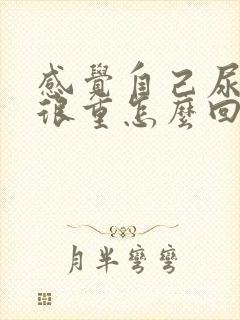 感覺自己尿
很重怎麼回
月半彎彎